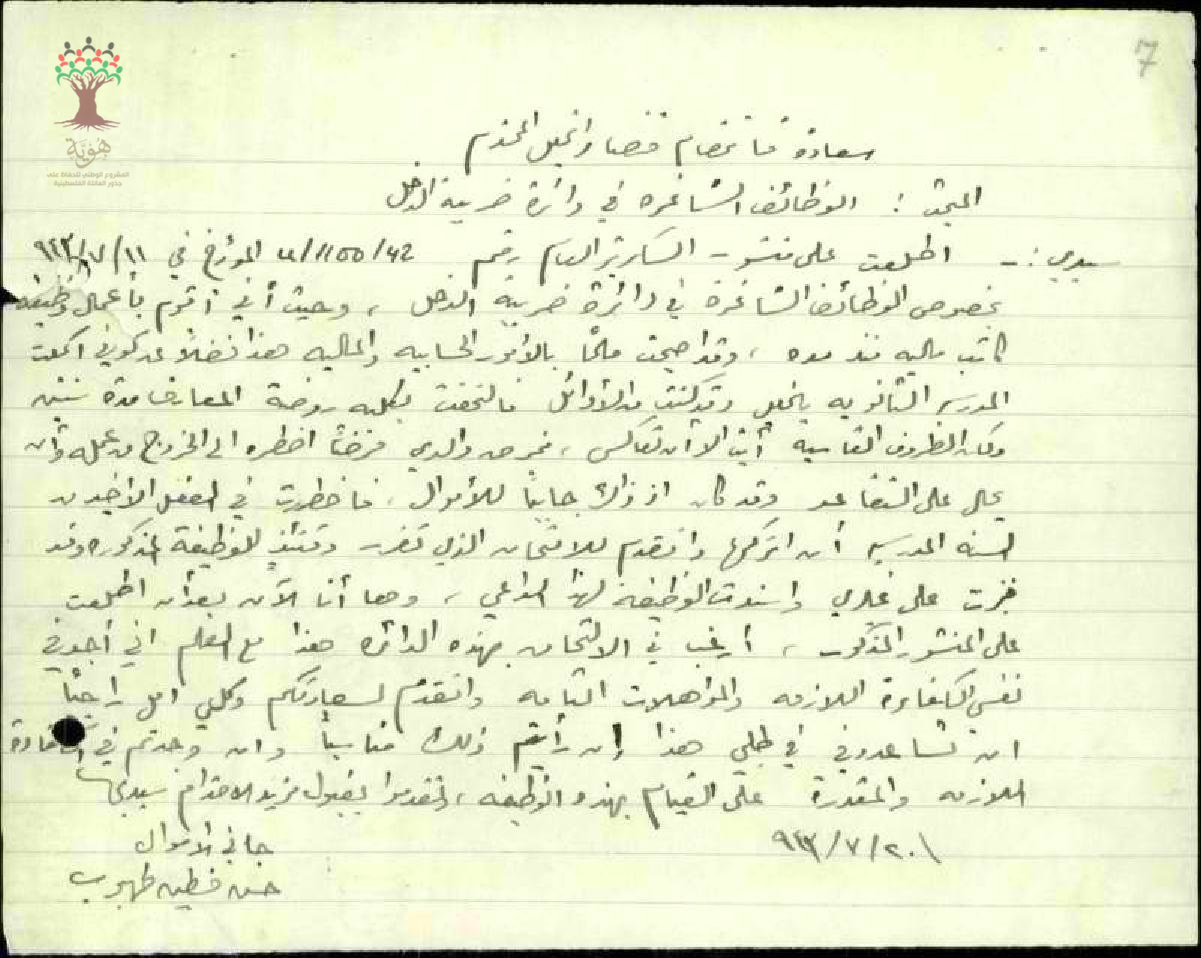 7
هُوِيَّة
المشروع الوطني للحفاظ على
جذور العائلة الفلسطينية
سعادة قائمقام قضاء الخليل المحترم
المبحث : الوظائف الشاغره في دائرة ضريبة الدخل
سيدي :- اطلعت على منشور السكرتير العام رقم 42/1155/ المؤرخ في ١١/٧/٩٤٣
بخصوص الوظائف الشاغرة في دائرة ضريبة الدخل ، وحيث أني أقوم بأعمال وظيفة
كاتب ماليه منذ مده ، وقد اصبحت ملمًا بالأمور الحسابيه والماليه هذا فضلاً عن كوني اكملت
المدرسه الثانويه بالخليل وقد كنت من الأوائل فالتحقت بكليه روضة المعارف مدة سنتين
ولكن الظروف القاسيه أبت الا أن تعاكس ، فمرض والدي مرضًا اضطره الى الخروج من عمله وأن
يحال على التقاعد وقد كان اذ ذاك جابيًا للأموال ، فاضطررت في الفصل الاخير من
السنه المدرسيه أن اتركها واتقدم للامتحان الذي تقرر وقتئذٍ للوظيفة المذكوره وقد
فزت على غيري واسندت الوظيفة لهذا الداعي ، وها أنا الآن بعد أن اطلعت
على المنشور المذكور ، أرغب في الالتحاق بهذه الدائره هذا مع العلم اني أجد في
نفسي الكفاءة اللازمه والمؤهلات التامه واتقدم لسعادتكم وكلي امل راجيًا
ان تساعدوني في طلبي هذا إن رأيتم ذلك مناسبًا وان وجدتم في الكفاءة
اللازمه والمقدرة على القيام بهذه الوظيفه ، وتفضلوا بقبول مزيد الاحترام سيدي
٢٠/٧/٩٤٣
جابي الأموال
حسن فطين طهبوب